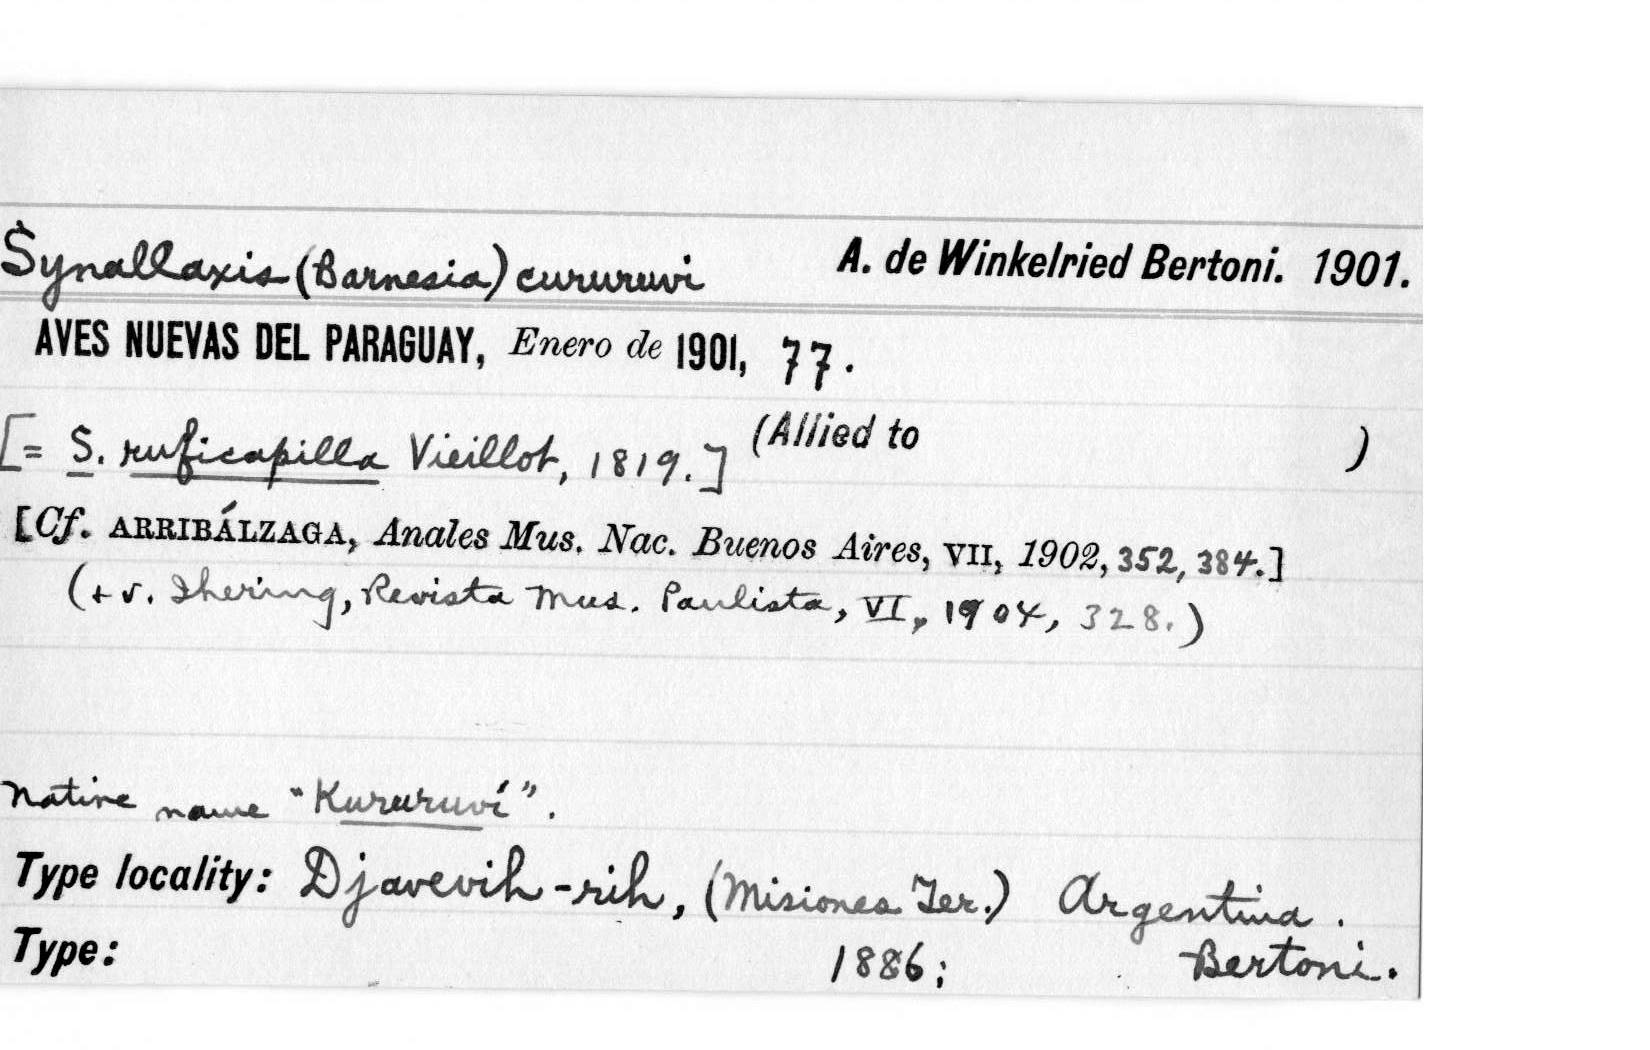 Synallaxis (Barnesia) cururuvi A. de Winkelried Bertoni. 1901.
AVES NUEVAS DEL PARAGUAY, Enero de 1901, 77.
[= S. ruficapilla Vieillot, 1819.] (Allied to )
[Cf. ARRIBÁLZAGA, Anales Mus. Nac. Buenos Aires, VII, 1902, 352, 384.]
(+ v. Ihering, Revista Mus. Paulista, VI, 1904, 328.)
Native name "Kururuví".
Type locality: Djavevih-rih, (Misiones Ter.) Argentina.
Type: 1886; Bertoni.